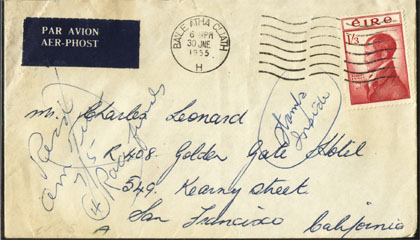 PAR AVION
AER-PHOST
BAILE ÁTHA CLIATH
6 PM
30 JNE
1955
H
ÉIRE
1/3
Stamps
Inside
Mr. Charles Leonard
R 408. Golden Gate Hotel
549. Kearny street
San Francisco
California